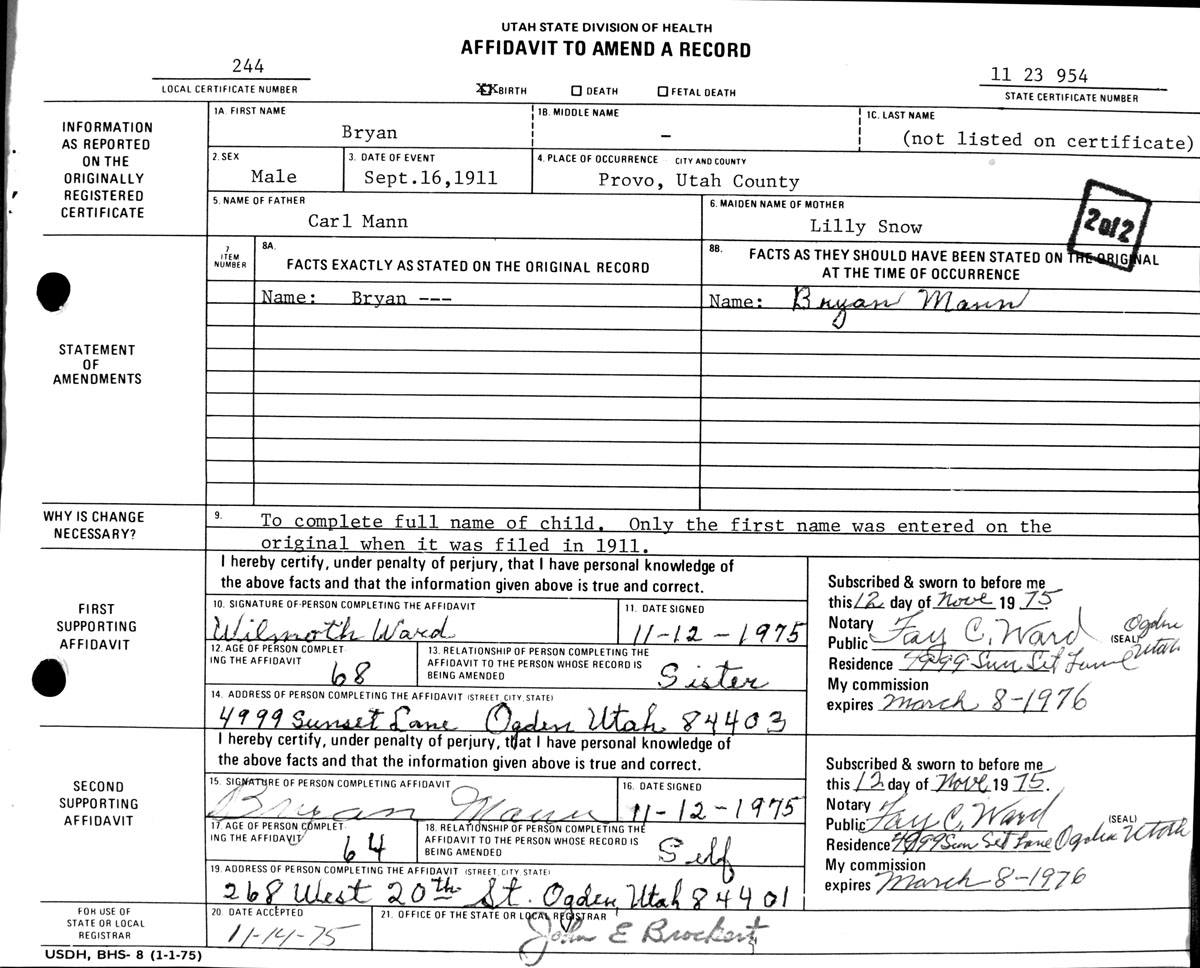 UTAH STATE DIVISION OF HEALTH
AFFIDAVIT TO AMEND A RECORD
244
LOCAL CERTIFICATE NUMBER
BIRTH DEATH FETAL DEATH
11 23 954
STATE CERTIFICATE NUMBER
INFORMATION
AS REPORTED
ON THE
ORIGINALLY
REGISTERED
CERTIFICATE
1A. FIRST NAME
Bryan
1B. MIDDLE NAME
–
1C. LAST NAME
(not listed on certificate)
2. SEX
Male
3. DATE OF EVENT
Sept.16,1911
4. PLACE OF OCCURRENCE - CITY AND COUNTY
Provo, Utah County
5. NAME OF FATHER
Carl Mann
6. MAIDEN NAME OF MOTHER
Lilly Snow
2 of 2
STATEMENT
OF
AMENDMENTS
7
ITEM
NUMBER
8A.
FACTS EXACTLY AS STATED ON THE ORIGINAL RECORD
8B. FACTS AS THEY SHOULD HAVE BEEN STATED ON THE ORIGINAL
AT THE TIME OF OCCURRENCE
Name: Bryan ---
Name: Bryan Mann
WHY IS CHANGE
NECESSARY?
9. To complete full name of child. Only the first name was entered on the
original when it was filed in 1911.
FIRST
SUPPORTING
AFFIDAVIT
I hereby certify, under penalty of perjury, that I have personal knowledge of
the above facts and that the information given above is true and correct.
10. SIGNATURE OF PERSON COMPLETING THE AFFIDAVIT
Wilmoth Ward
11. DATE SIGNED
11-12-1975
12. AGE OF PERSON COMPLET-
ING THE AFFIDAVIT
68
13. RELATIONSHIP OF PERSON COMPLETING THE
AFFIDAVIT TO THE PERSON WHOSE RECORD IS
BEING AMENDED
Sister
14. ADDRESS OF PERSON COMPLETING THE AFFIDAVIT (STREET, CITY, STATE)
4999 Sunset Lane Ogden Utah 84403
Subscribed & sworn to before me
this 12 day of Nove 1975
Notary
Public Fay C. Ward (SEAL) Ogden
Utah
Residence 4999 Sun Set Lane
My commission
expires March 8-1976
SECOND
SUPPORTING
AFFIDAVIT
I hereby certify, under penalty of perjury, that I have personal knowledge of
the above facts and that the information given above is true and correct.
15. SIGNATURE OF PERSON COMPLETING AFFIDAVIT
Bryan Mann
16. DATE SIGNED
11-12-1975
17. AGE OF PERSON COMPLET-
ING THE AFFIDAVIT
64
18. RELATIONSHIP OF PERSON COMPLETING THE
AFFIDAVIT TO THE PERSON WHOSE RECORD IS
BEING AMENDED
Self
19. ADDRESS OF PERSON COMPLETING THE AFFIDAVIT (STREET, CITY, STATE)
268 West 20th St. Ogden, Utah 84401
Subscribed & sworn to before me
this 12 day of Nove 1975.
Notary
Public Fay C. Ward (SEAL)
Residence 4999 Sun Set Lane Ogden Utah
My commission
expires March 8-1976
FOR USE OF
STATE OR LOCAL
REGISTRAR
20. DATE ACCEPTED
11-14-75
21. OFFICE OF THE STATE OR LOCAL REGISTRAR
John E Brockert
USDH, BHS- 8 (1-1-75)